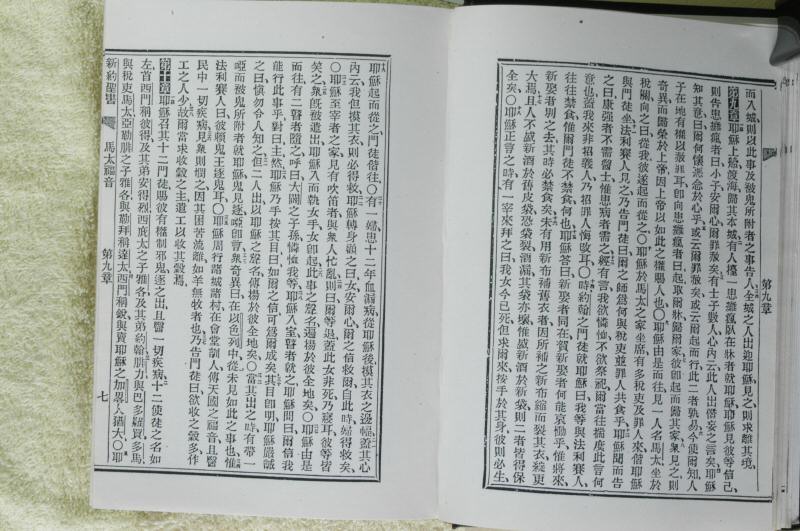 第九章
而入城則以此事及被鬼所附者之事告人全城之人出迎耶穌見之則求離其境
第九章耶穌上船渡海歸其本城有人擡一患癱瘋臥在牀者就耶穌耶穌見彼等信己
則告患癱瘋者曰小子安爾心爾罪赦矣有士子數人心內云此人出僭妄之言矣耶穌
知其意曰爾何懷惡念於心乎或云爾罪赦矣或云爾起而行此二者孰易今使爾知人
子在地有權以赦罪耳卽向患癱瘋者曰起取爾牀歸爾家彼卽起而歸其家衆見之則
奇異而歸榮於上帝因上帝以如此之權賜人也○耶穌由是而往見一人名馬太坐於
稅關向之曰從我彼遂起而從之○耶穌於馬太之家坐席有多稅吏及罪人來偕耶穌
與門徒坐法利賽人見之乃告門徒曰爾之師爲何與稅吏並罪人共食乎耶穌聞而告
之曰康强者不需醫士惟患病者需之經有言我欲憐恤不欲祭祀爾當往揣度此言何
意也蓋我非招義人乃招罪人悔改耳○時約翰之門徒就耶穌曰我等與法利賽人
往往禁食惟爾門徒不禁食何也耶穌答曰新娶者同在賀新娶者何能哀慟乎惟將來
新娶者別之去其時必禁食矣未有用新布補舊衣者因所補之新布縮而裂其衣綻更
大焉且人不盛新酒於舊皮袋恐袋裂酒漏其袋亦壞惟盛新酒於新袋則二者皆得保
全矣○耶穌正言之時有一宰來拜之曰我女今已死但求爾來按手於其身彼則必生
耶穌起而從之門徒偕往○有一婦患十二年血漏病從耶穌後摸其衣之邊幅蓋其心
內云我但摸其衣則必得救耶穌轉身顧之曰女安爾心爾之信救爾自此時婦得救矣
○耶穌至宰者之家見有吹笛者與衆人忙亂則曰爾等退蓋此女非死乃寢耳彼等皆
笑之衆旣被遣出耶穌入而執女手女卽起此事之聲名遍揚於彼全地矣○耶穌由是
而往有二瞽者隨之呼曰大闢之子孫憐恤我等耶穌入室瞽者就之耶穌問曰爾信我
能行此事乎對曰主然耶穌乃手按其目曰如爾之信可爲爾成矣其目卽明耶穌嚴誡
之曰愼勿令人知之但二人出以耶穌之聲名傳揚於彼全地矣○當其出之時有帶一
啞而被鬼所附者就耶穌鬼見逐啞卽言衆奇異曰在以色列中從未見如此之事也惟
法利賽人曰彼賴鬼王逐鬼耳○耶穌周行諸城諸村在會堂訓人傳天國之福音且醫
民中一切疾病見衆則憫之因其困苦流離如羊無牧者也乃告門徒曰欲收之穀多作
工之人少故爾當求收穀之主遣工以收其穀焉
第十章耶穌召其十二門徒賜彼有權制邪鬼逐之出且醫一切疾病十二使徒之名如
左首西門稱彼得及其弟安得烈西庇太之子雅各及其弟約翰腓力與巴多羅買多馬
與稅吏馬太亞勒腓之子雅各與勒拜稱達太西門稱銳與賣耶穌之加畧人猶大○耶
新約聖書 馬太福音 第九章 七